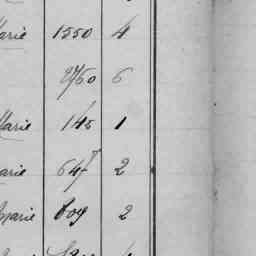 arie 1550 4
2760 6
Marie 145 1
arie 647 2
Marie 609 2